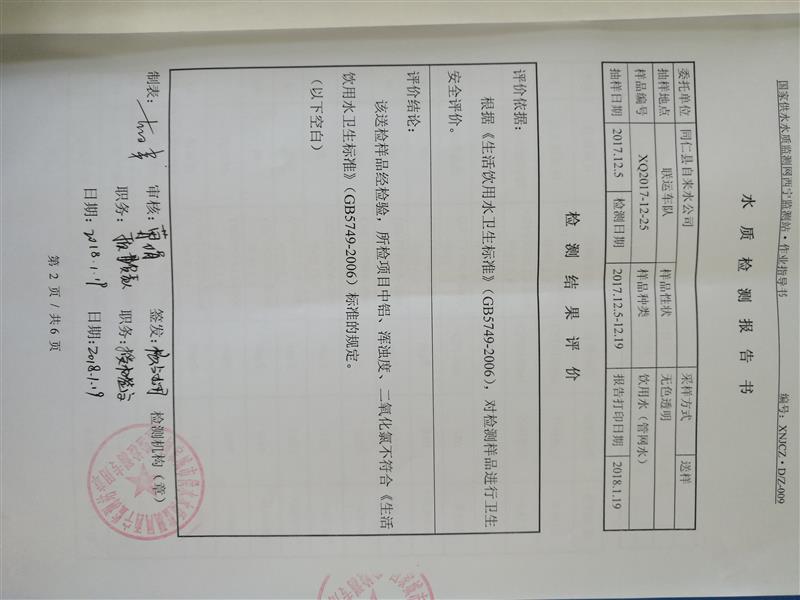 国家供水水质监测网西宁监测站·作业指导书 编号：XNJCZ·D/Z-009
水质检测报告书
委托单位 同仁县自来水公司 采样方式 送样
抽样地点 联运车队 样品性状 无色透明
样品编号 XQ2017-12-25 样品种类 饮用水（管网水）
抽样日期 2017.12.5 检测日期 2017.12.5-12.19 报告打印日期 2018.1.19
检测结果评价
评价依据：
根据《生活饮用水卫生标准》（GB5749-2006），对检测样品进行卫生
安全评价。
评价结论：
该送检样品经检验，所检项目中铝、浑浊度、二氧化氯不符合《生活
饮用水卫生标准》（GB5749-2006）标准的规定。
（以下空白）
制表： 审核： 签发： 检测机构（章）
职务： 职务：
日期：2018.1.19 日期：2018.1.19
第 2 页 / 共 6 页